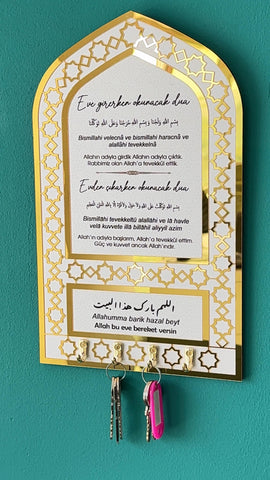 Eve girerken okunacak dua
بِسْمِ اللهِ وَلَجْنَا وَبِسْمِ اللهِ خَرَجْنَا وَعَلَى اللهِ تَوَكَّلْنَا
Bismillahi velecnâ ve bismillahi haracnâ ve
alallâhi tevekkelnâ
Allahın adıyla girdik Allahın adıyla çıktık.
Rabbimiz olan Allah'a tevekkül ettik.
Evden çıkarken okunacak dua
بِسْمِ اللهِ تَوَكَّلْتُ عَلَى اللهِ وَلَا حَوْلَ وَلَا قُوَّةَ اِلَّا بِاللهِ الْعَلِيِّ الْعَظِيمِ
Bismillâhi tevekkeltü alallahi ve lâ havle
velâ kuvvete illâ billâhil aliyyil azim
Allah'ın adıyla başlarım. Allah'a tevekkül ettim.
Güç ve kuvvet ancak Allah'ındır.
اللهم بارك هذا البيت
Allahumma barik hazal beyt
Allah bu eve bereket versin